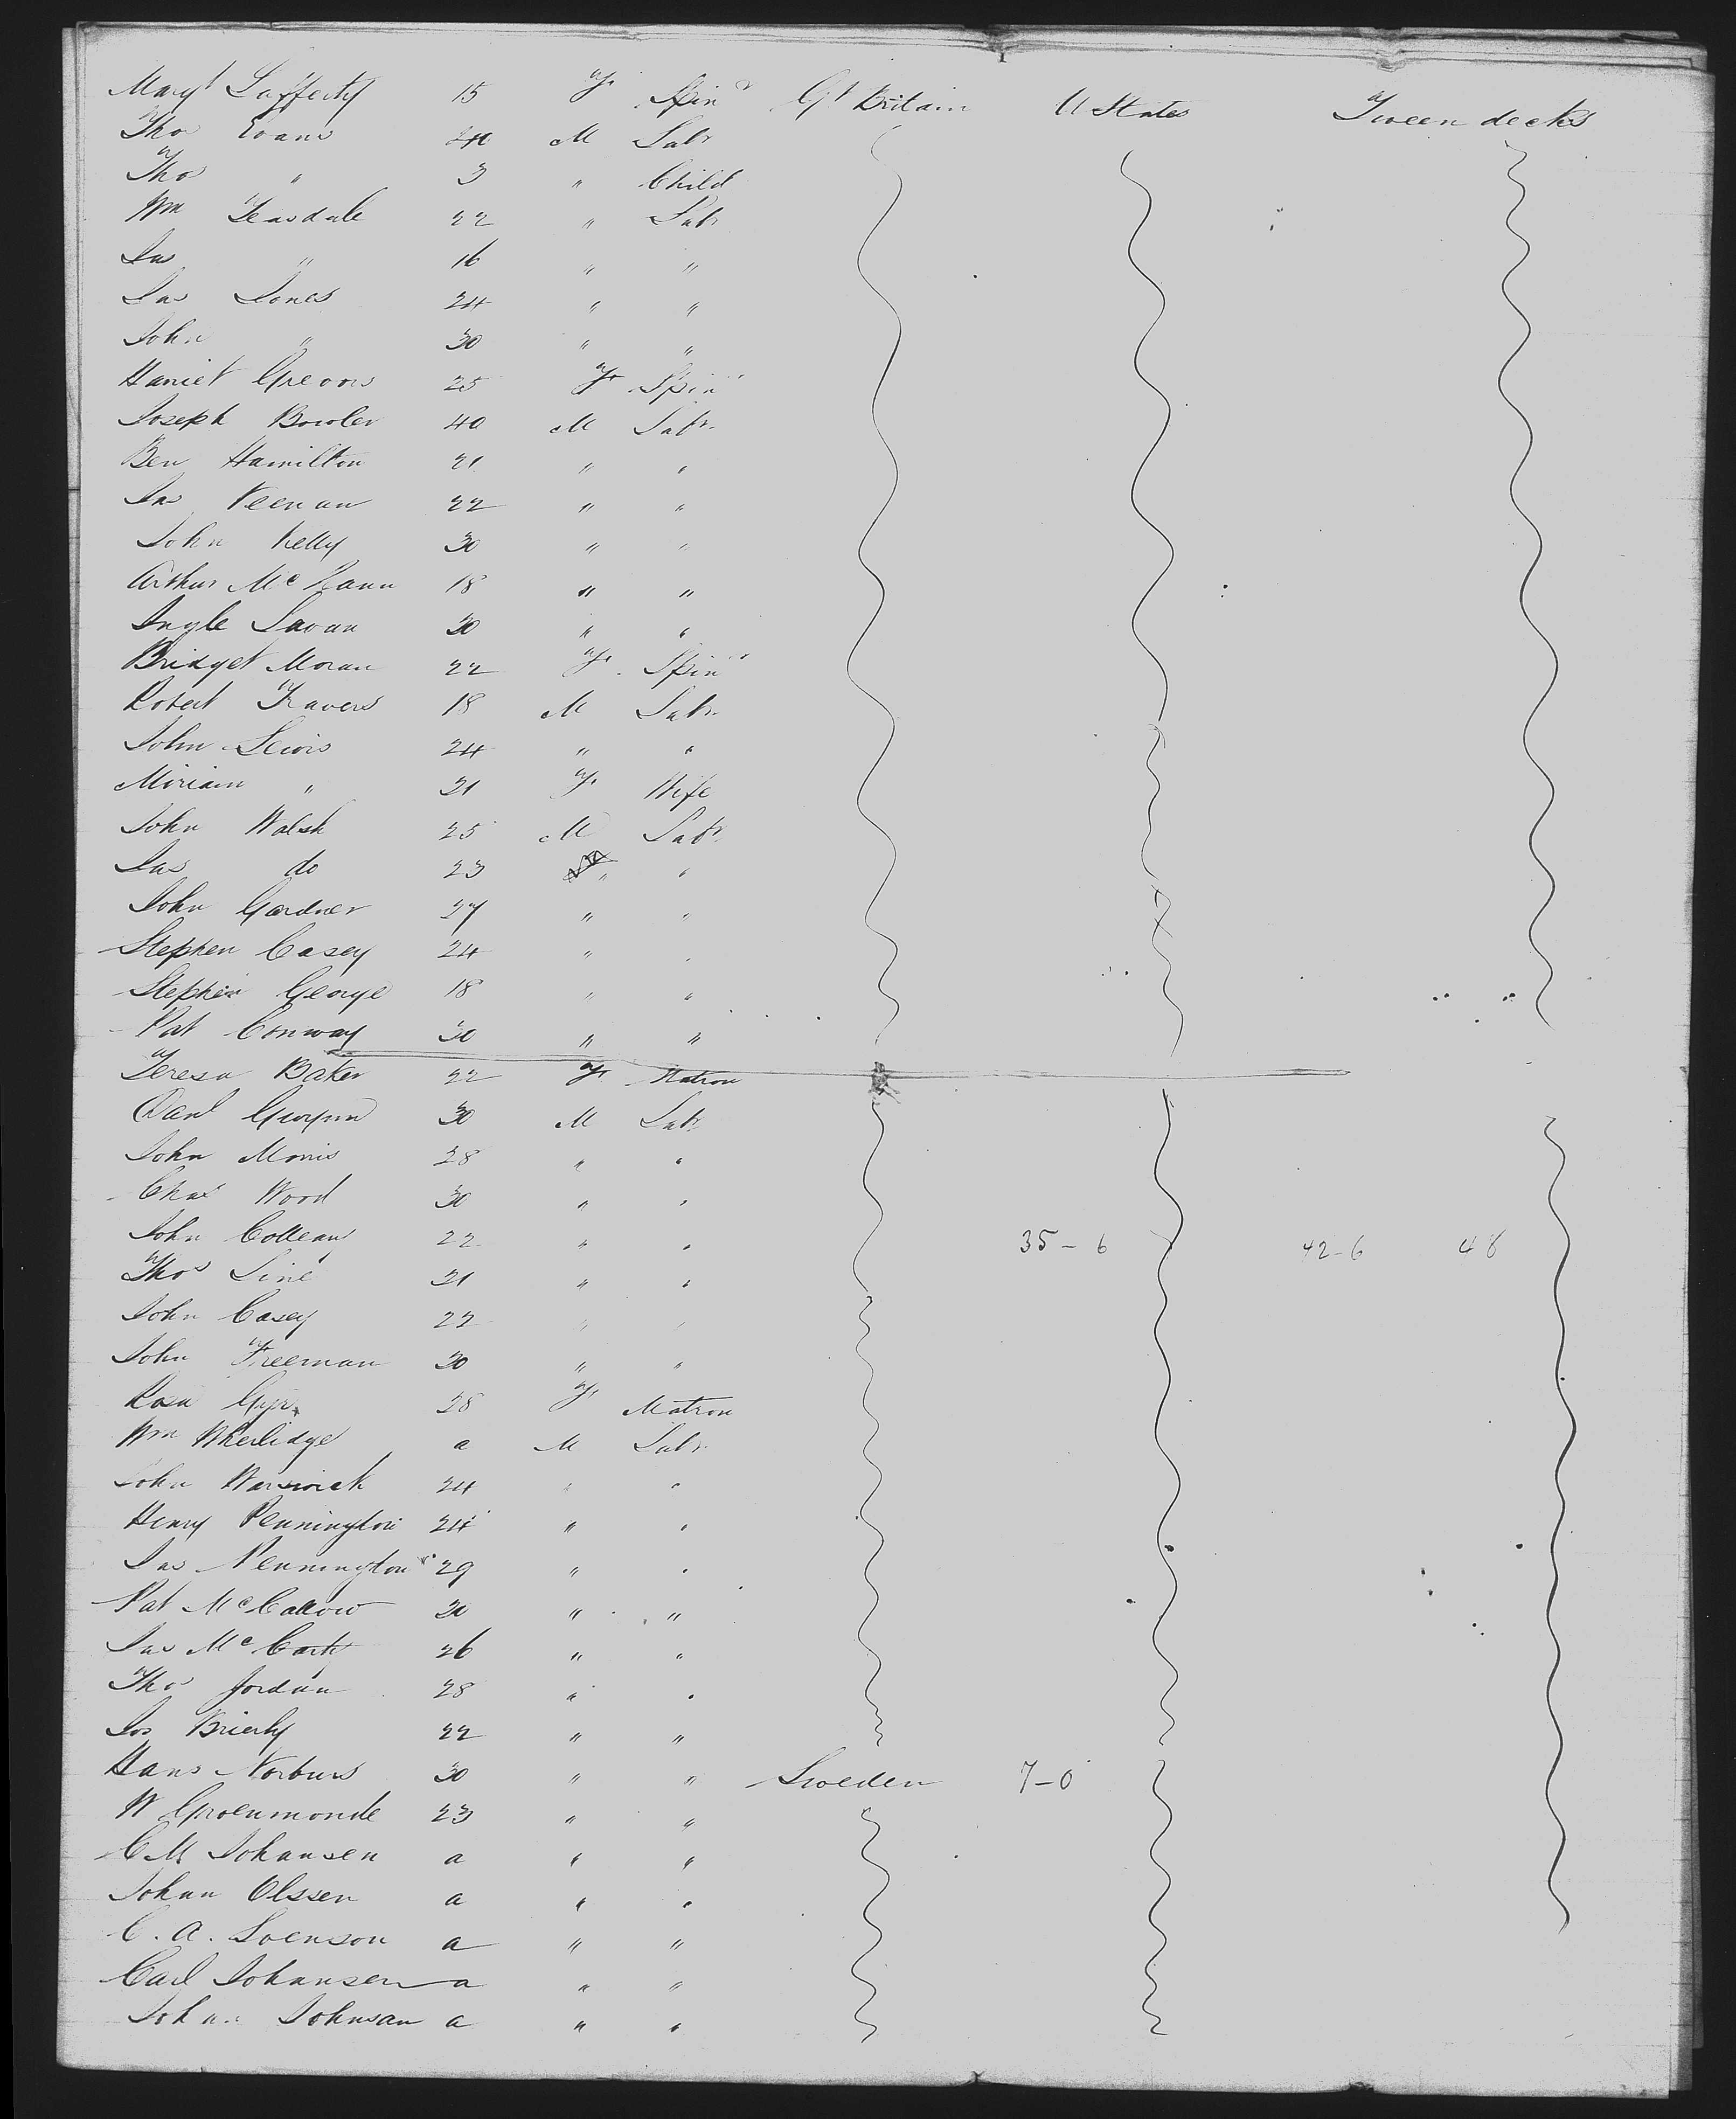 Margt Lafferty 15 F Spinr Gt Britain U States Tween decks
Thos Evans 24 M Labr
Thos " 3 " Child
Wm Teasdale 22 " Labr
Jas " 16 " "
Jas Jones 24 " "
John " 30 " "
Harriet Greaves 25 F Spinr
Joseph Bowler 40 M Labr
Ben Hamilton 21 " "
Jas Keenan 22 " "
John Kelly 30 " "
Arthur Mc Kann 18 " "
Ingle Lavan 30 " "
Bridget Moran 22 F Spinr
Robert Travers 18 M Labr
John Lewis 24 " "
Miriam " 21 F Wife
John Walsh 25 M Labr
Jas do 23 " "
John Gardner 27 " "
Stephen Casey 24 " "
Stephen George 18 " "
Pat Conway 30 " "
Teresa Baker 22 F Matron
Danl Gwynn 30 M Labr
John Morris 28 " "
Chas Wood 30 " "
John Colleans 22 " " 35-6 42-6 48
Thos Line 21 " "
John Casey 22 " "
John Freeman 30 " "
Rosa 28 F Matron
Wm a M Labr
John Warswick 24 " "
Henry Pennington 24 " "
Jas Pennington 29 " "
Pat Mc 20 " "
Jas Mc Carty 26 " "
Thos Jordan 28 " "
Jos Brierly 22 " "
Hans Norburs 30 " " Sweden 7-0
W Groenmonde 23 " "
C M Johansen a " "
Johan Olssen a " "
C. A. Svenson a " "
Carl Johansen a " "
John Johnson a " "